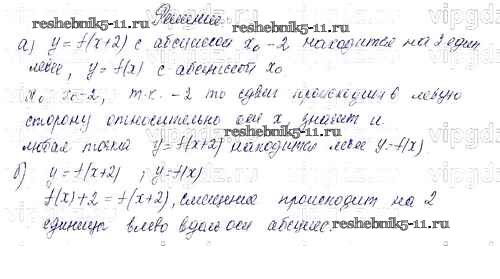 Решение
а) y = f(x+2) с абсциссой x₀-2 находится на 2 един.
левее, y = f(x) с абсциссой x₀
x₀ x₀-2, т.к. -2 то сдвиг происходит в левую
сторону относительно оси x, значит и
любая точка y = f(x+2) находится левее y = f(x)
б) y = f(x+2) ; y = f(x)
f(x)+2 = f(x+2), смещение происходит на 2
единицы влево вдоль оси абсцисс.
reshebnik5-11.ru
reshebnik5-11.ru
reshebnik5-11.ru
reshebnik5-11.ru
reshebnik5-11.ru
vipgdz